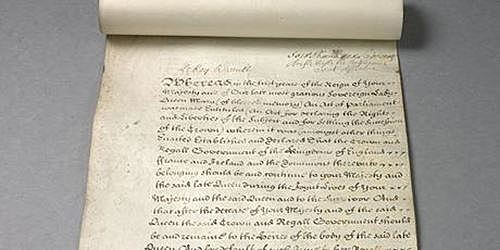 Le Roy le veult
Whereas in the first yeare of the Reign of Your
Majesty and of Our late most gratious Sovereign Lady
Queen Mary (of blessed memory) An Act of Parliament
was made Entituled An Act for declaring the Rights
and Liberties of the Subject and for setling the Succession
of the Crown) wherein it was amongst other things
Enacted Established and Declared That the Crown and
Regall Government of the Kingdoms of England
ffrance and Ireland and the Dominions thereunto
belonging should be and continue to your Majesty and
the said late Queen during the Joynt Lives of Your
Majesty and the said Queen and to the Survivor And
that after the decease of Your Majesty and of the said
Queen the said Crown and Regall Government should
be and remaine to the Heires of the body of the said late
Queen And for default of such